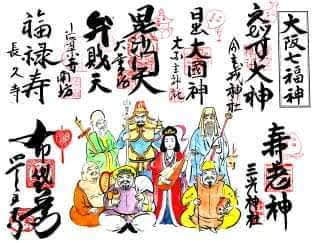 大阪七福神
ゑびす大神
今宮戎神社
日出大國神
大国主神社
毘沙門天
大乗坊
弁財天
法案寺南坊
福禄寿
長久寺
寿老神
三光神社
布袋尊
四天王寺